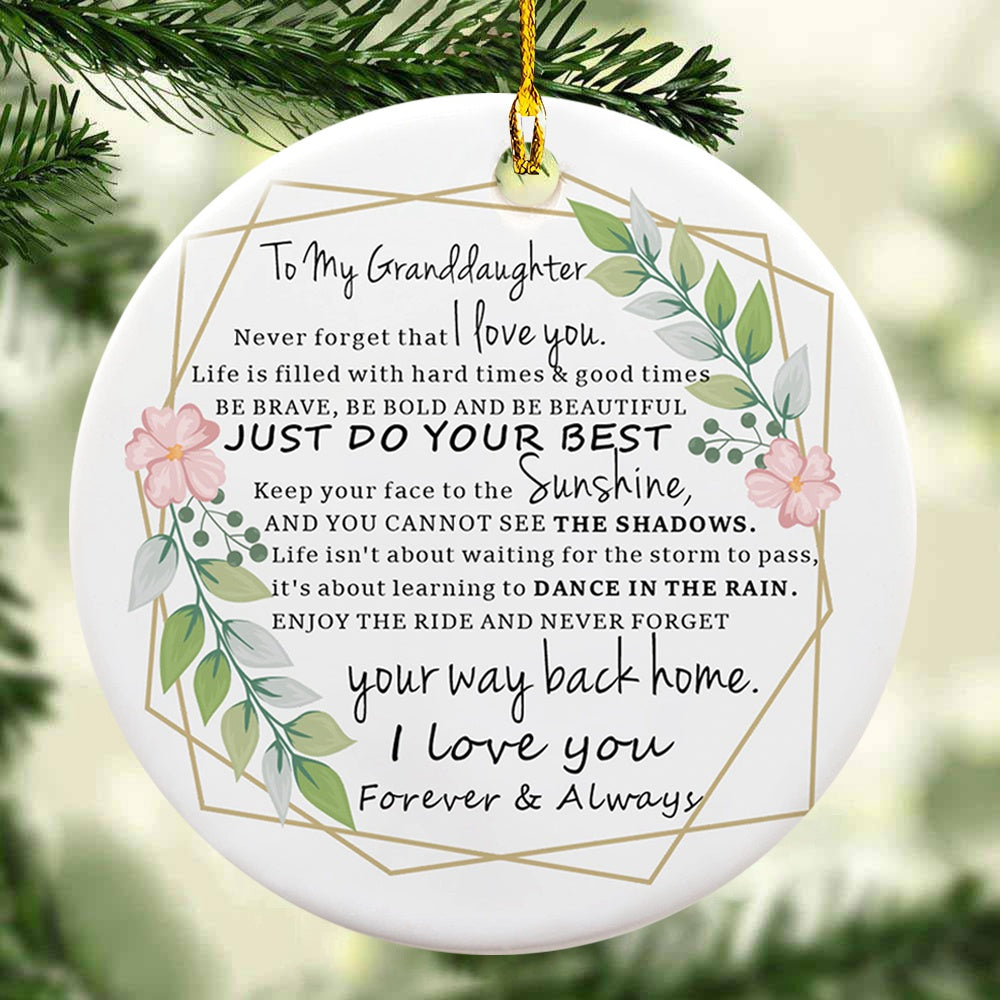 To My Granddaughter
Never forget that I love you.
Life is filled with hard times & good times
BE BRAVE, BE BOLD AND BE BEAUTIFUL
JUST DO YOUR BEST
Keep your face to the Sunshine,
AND YOU CANNOT SEE THE SHADOWS.
Life isn't about waiting for the storm to pass,
it's about learning to DANCE IN THE RAIN.
ENJOY THE RIDE AND NEVER FORGET
your way back home.
I love you
Forever & Always